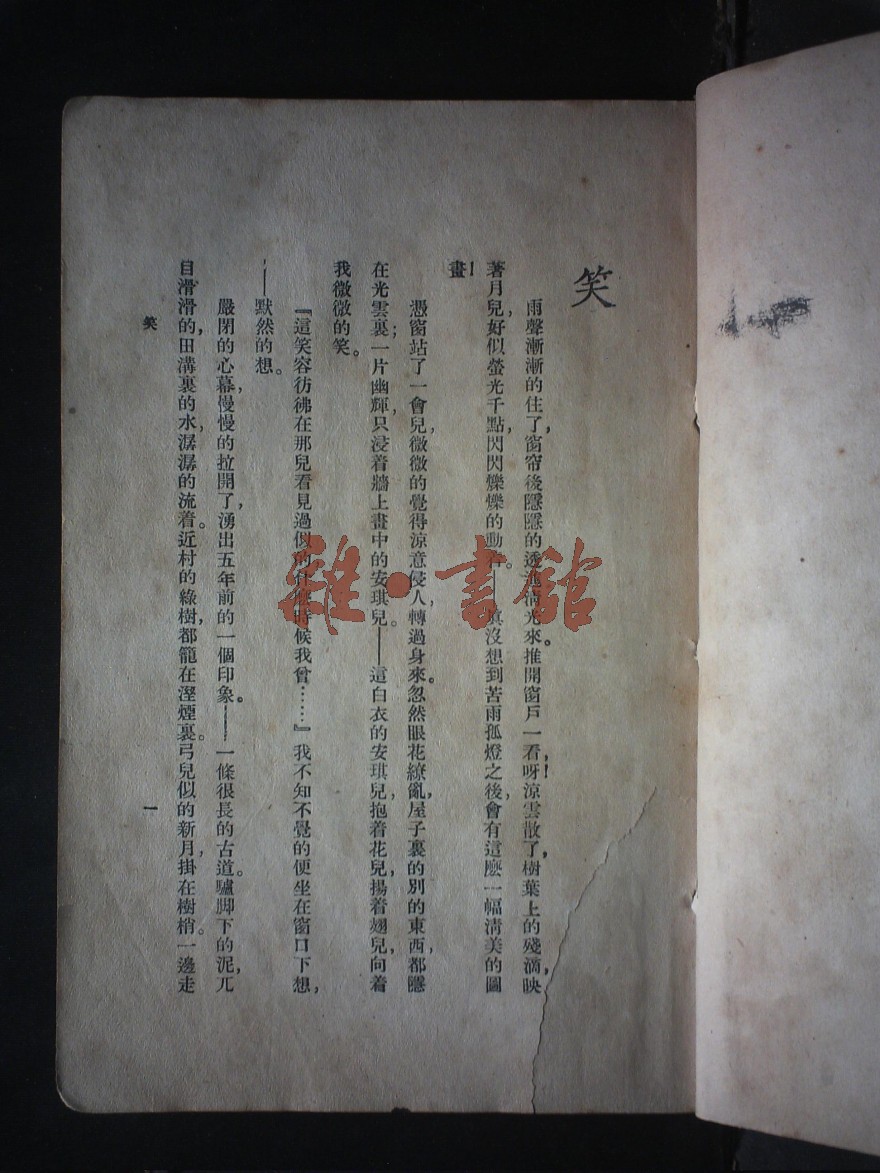 笑
雨聲漸漸的住了，窗帘後隱隱的透進清光來。推開窗戶一看，呀！涼雲散了，樹葉上的殘滴，映
著月兒，好似螢光千點，閃閃爍爍的動着。——眞沒想到苦雨孤燈之後，會有這麼一幅清美的圖
畫！
憑窗站了一會兒，微微的覺得涼意侵人。轉過身來，忽然眼花繚亂，屋子裏的別的東西，都隱
在光雲裏；一片幽輝，只浸着牆上畫中的安琪兒。——這白衣的安琪兒，抱着花兒，揚着翅兒，向着
我微微的笑。
『這笑容彷彿在那兒看見過似的，什麼時候，我曾……』我不知不覺的便坐在窗口下想，
——默然的想。
嚴閉的心幕，慢慢的拉開了，湧出五年前的一個印象。——一條很長的古道。驢脚下的泥，兀
自滑滑的，田溝裏的水，潺潺的流着。近村的綠樹，都籠在溼煙裏。弓兒似的新月，掛在樹梢。一邊走
笑
一
雜·書館